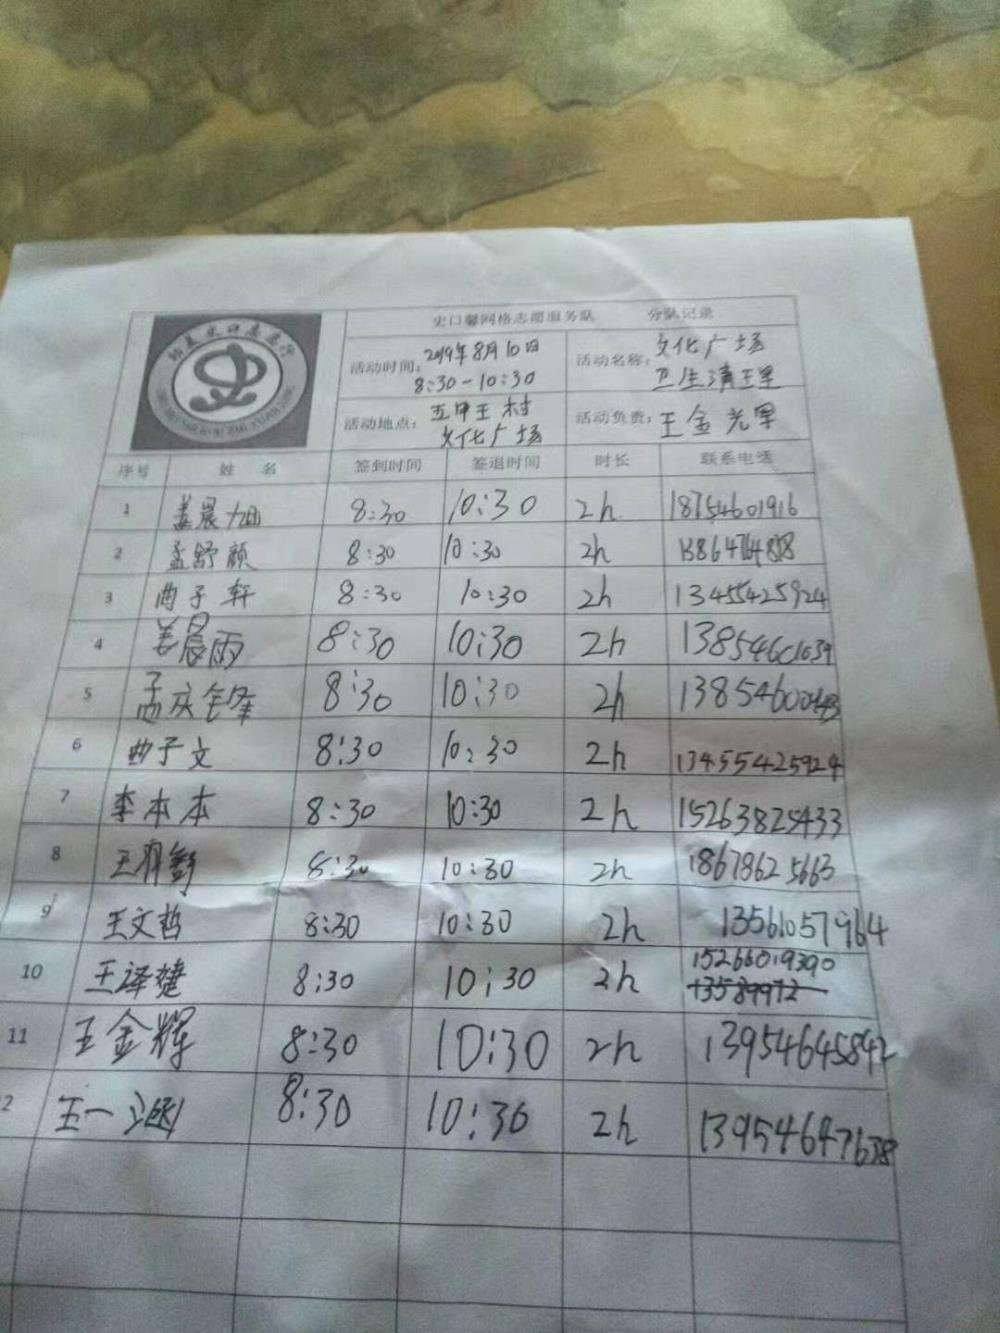 史口馨网格志愿服务队 分队记录
活动时间：2019年8月10日
8:30-10:30
活动名称：文化广场
卫生清理
活动地点：五甲王村
文化广场
活动负责：王金光
序号 姓 名 签到时间 签退时间 时长 联系电话
1 姜晨旭 8:30 10:30 2h 18754601916
2 孟舒颜 8:30 10:30 2h
3 曲子轩 8:30 10:30 2h 13455425924
4 姜晨雨 8:30 10:30 2h 13854601039
5 孟庆 8:30 10:30 2h
6 曲子文 8:30 10:30 2h 13455425924
7 李本本 8:30 10:30 2h 15263825433
8 王 8:30 10:30 2h 18678625663
9 王文哲 8:30 10:30 2h 13561057964
10 王译婕 8:30 10:30 2h 15266019390
13589972
11 王金辉 8:30 10:30 2h 13954645842
2 王一涵 8:30 10:30 2h 13954647638